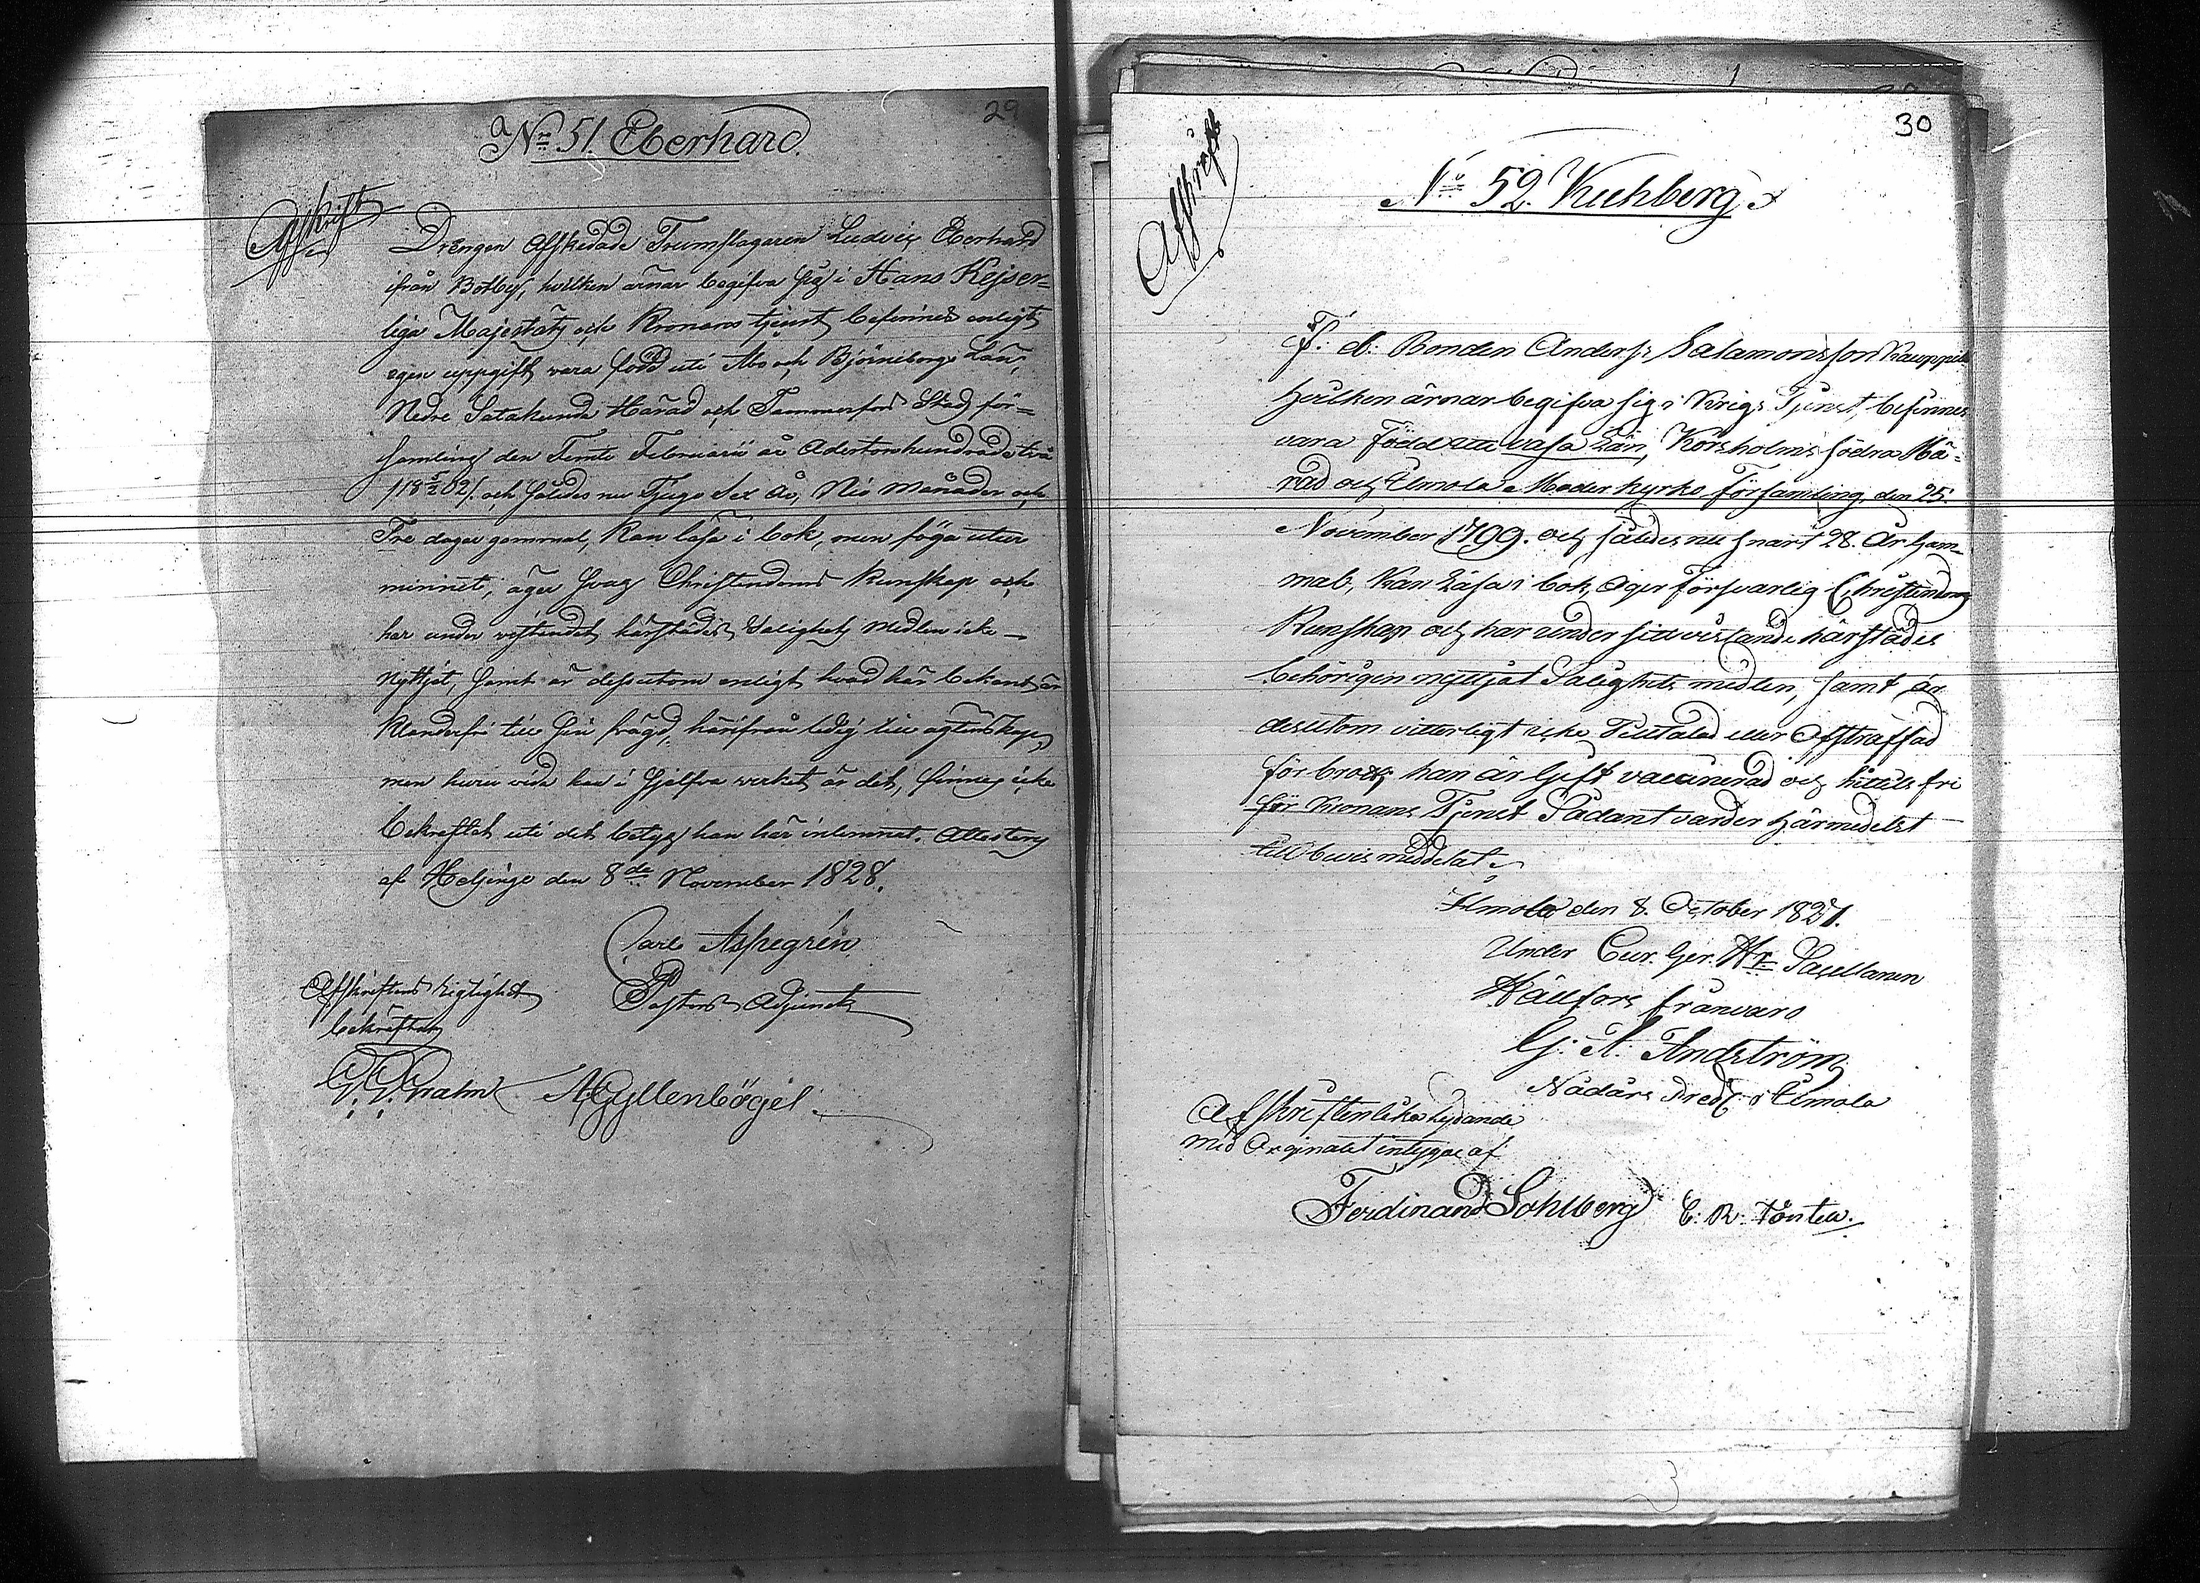 29
Nro 51. Eberhard.
Afskrift
Drengen Afskedade Trumslagaren Ludvig Eberhard
ifrån Botby, hvilken ärnar begifva sig i Hans Kejser=
liga Majestäts och Kronans tjenst befinnes enligt
egen uppgift vara född uti Åbo och Björneborgs Län,
Nedre Satakunda Härad och Tammerfors Stad för=
samling den Femte Februarii år Adertonhundradetvå
/18 5/2 02/. och således nu Tjugo Sex År, Nio Månader och
Tre dagar gammal, Kan läsa i bok, men föga utur
minnet, äger svag Christendoms Kunskap och
har under vistandet härstädes Salighets Medlen icke
nyttjat, samt är dessutom enligt hvad här bekant är
klanderfri till sin frägd, härifrån ledig till ägtenskap,
men huru vida han i sjelfva verket är det, finnes icke
bekräftat uti det betyg han här inlemnat. Attesteras
af Helsinge den 8de November 1828.
Carl Aspegrén
Pastors Adjunct
Afskriftens rigtighet
bekräftas
G. G. Grahn A. Gyllenbögel.
30
Afskrift
No 52. Kuhberg
F. d. Bonden Anders Salamonsson Kauppila
hvilken ärnar begifva sig i Krigs Tjenst, befinnes
vara Född uti Vasa Län, Korsholms södra Hä=
rad och Ilmola Moderkyrko Församling, den 25.
November 1799. och således nu snart 28. År Gam=
mal, Kan Läsa i bok, äger Försvarlig Christendoms
Kunskap och har under sitt vistande härstädes
behörigen nyttjat Salighets medlen, samt är
desutom vitterligt icke Tilltalad eller Afstraffad
för brott, han är Gift vaccinerad och hittils fri
för Kronans Tjenst Sådant varder härmedelst
till bevis meddelat.
Ilmola den 8. October 1827.
Under Cur. Ger. Hr
frånvaro
G. A. Andström
Nådårs Pred. i Ilmola
Afskriften lika lydande
med Orginalet intygar af
Ferdinand Sohlberg C. R. Töntea.